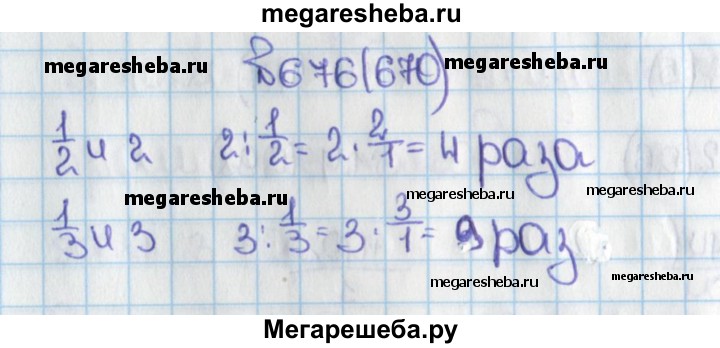 megaresheba.ru
megaresheba.ru №676(670) megaresheba.ru
1/2 и 2 2 : 1/2 = 2 · 2/1 = 4 раза
megaresheba.ru megaresheba.ru megaresheba.ru
1/3 и 3 3 : 1/3 = 3 · 3/1 = 9 раз
megaresheba.ru megaresheba.ru
Мегарешеба.ру